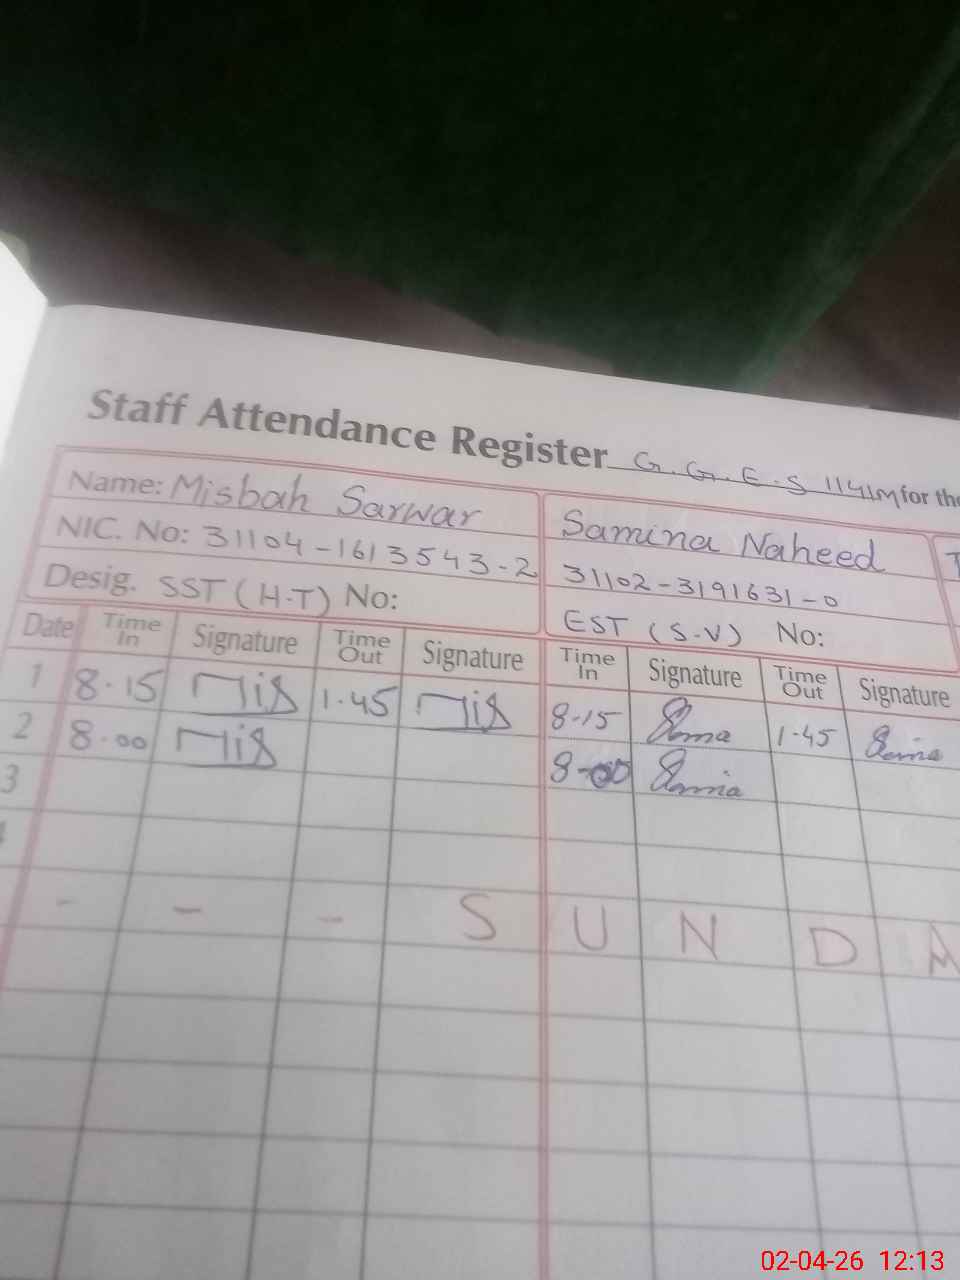 Staff Attendance Register G.G.E.S 1141M for the
Name: Misbah Sarwar
NIC. No: 31104-1613543-2
Desig. SST (H-T) No:
Samina Naheed
31102-3191631-0
EST (S-V) No:
Date Time In Signature Time Out Signature Time In Signature Time Out Signature
1 8.15 1.45 8-15 1.45
2 8.00 8-00
3
- - - S U N D A
02-04-26 12:13